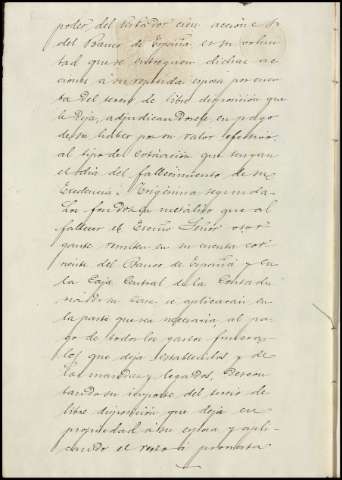 poder del testador cien acciones
del Banco de España es su volun
tad que se entreguen dichas ac
ciones a su querida esposa por cuen
ta del tercio de libre disposición que
le deja, adjudicandosele, en pago
de su haber por su valor efectivo,
al tipo de cotización que tengan
el dia del fallecimiento de su
Excelencia. Trigésima segunda.
Los fondos en metálico que al
fallecer el Excmo Señor otor
gante resulten en su cuenta cor
riente del Banco de España y en
la Caja Central de la Contadu
ria de su Casa se aplicarán en
la parte que sea necesaria, al pa
go de todos los gastos funera
les que deja establecidos y de
las mandas y legados, descon
tando su importe del tercio de
libre disposición que deja en
propiedad á su esposa y apli
cando el resto á prorrata